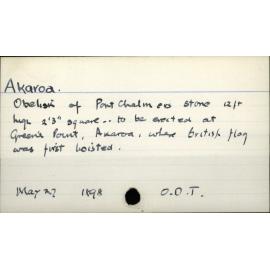 Akaroa.
Obelisk of Port Chalmers stone 12ft
high 2'3" square.. to be erected at
Green's Point, Akaroa, where british flag
was first hoisted.
May 27 1898 O.D.T.